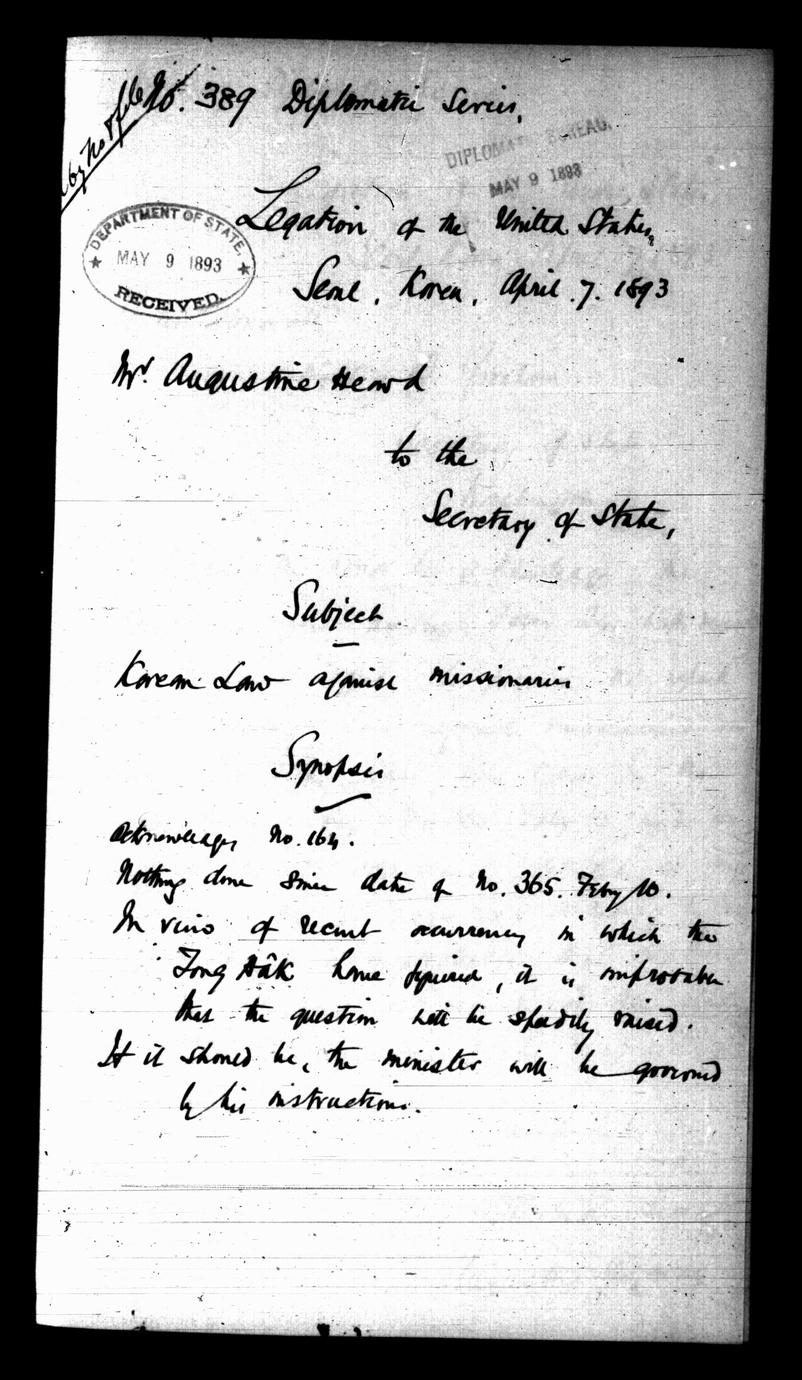 No. 389 Diplomatic Series,
DIPLOMATIC BUREAU.
MAY 9 1893
Legation of the United States,
DEPARTMENT OF STATE.
MAY 9 1893
RECEIVED.
Seoul, Korea, April 7. 1893
Mr. Augustine Heard
to the
Secretary of State,
Subject.
Korean Law against missionaries
Synopsis
Acknowledges No. 164.
Nothing done since date of No. 365. Feby 10.
In view of recent occurrences in which the
Tong Hâk have figured, it is improbable
that the question will be speedily raised.
If it should be, the minister will be governed
by his instructions.